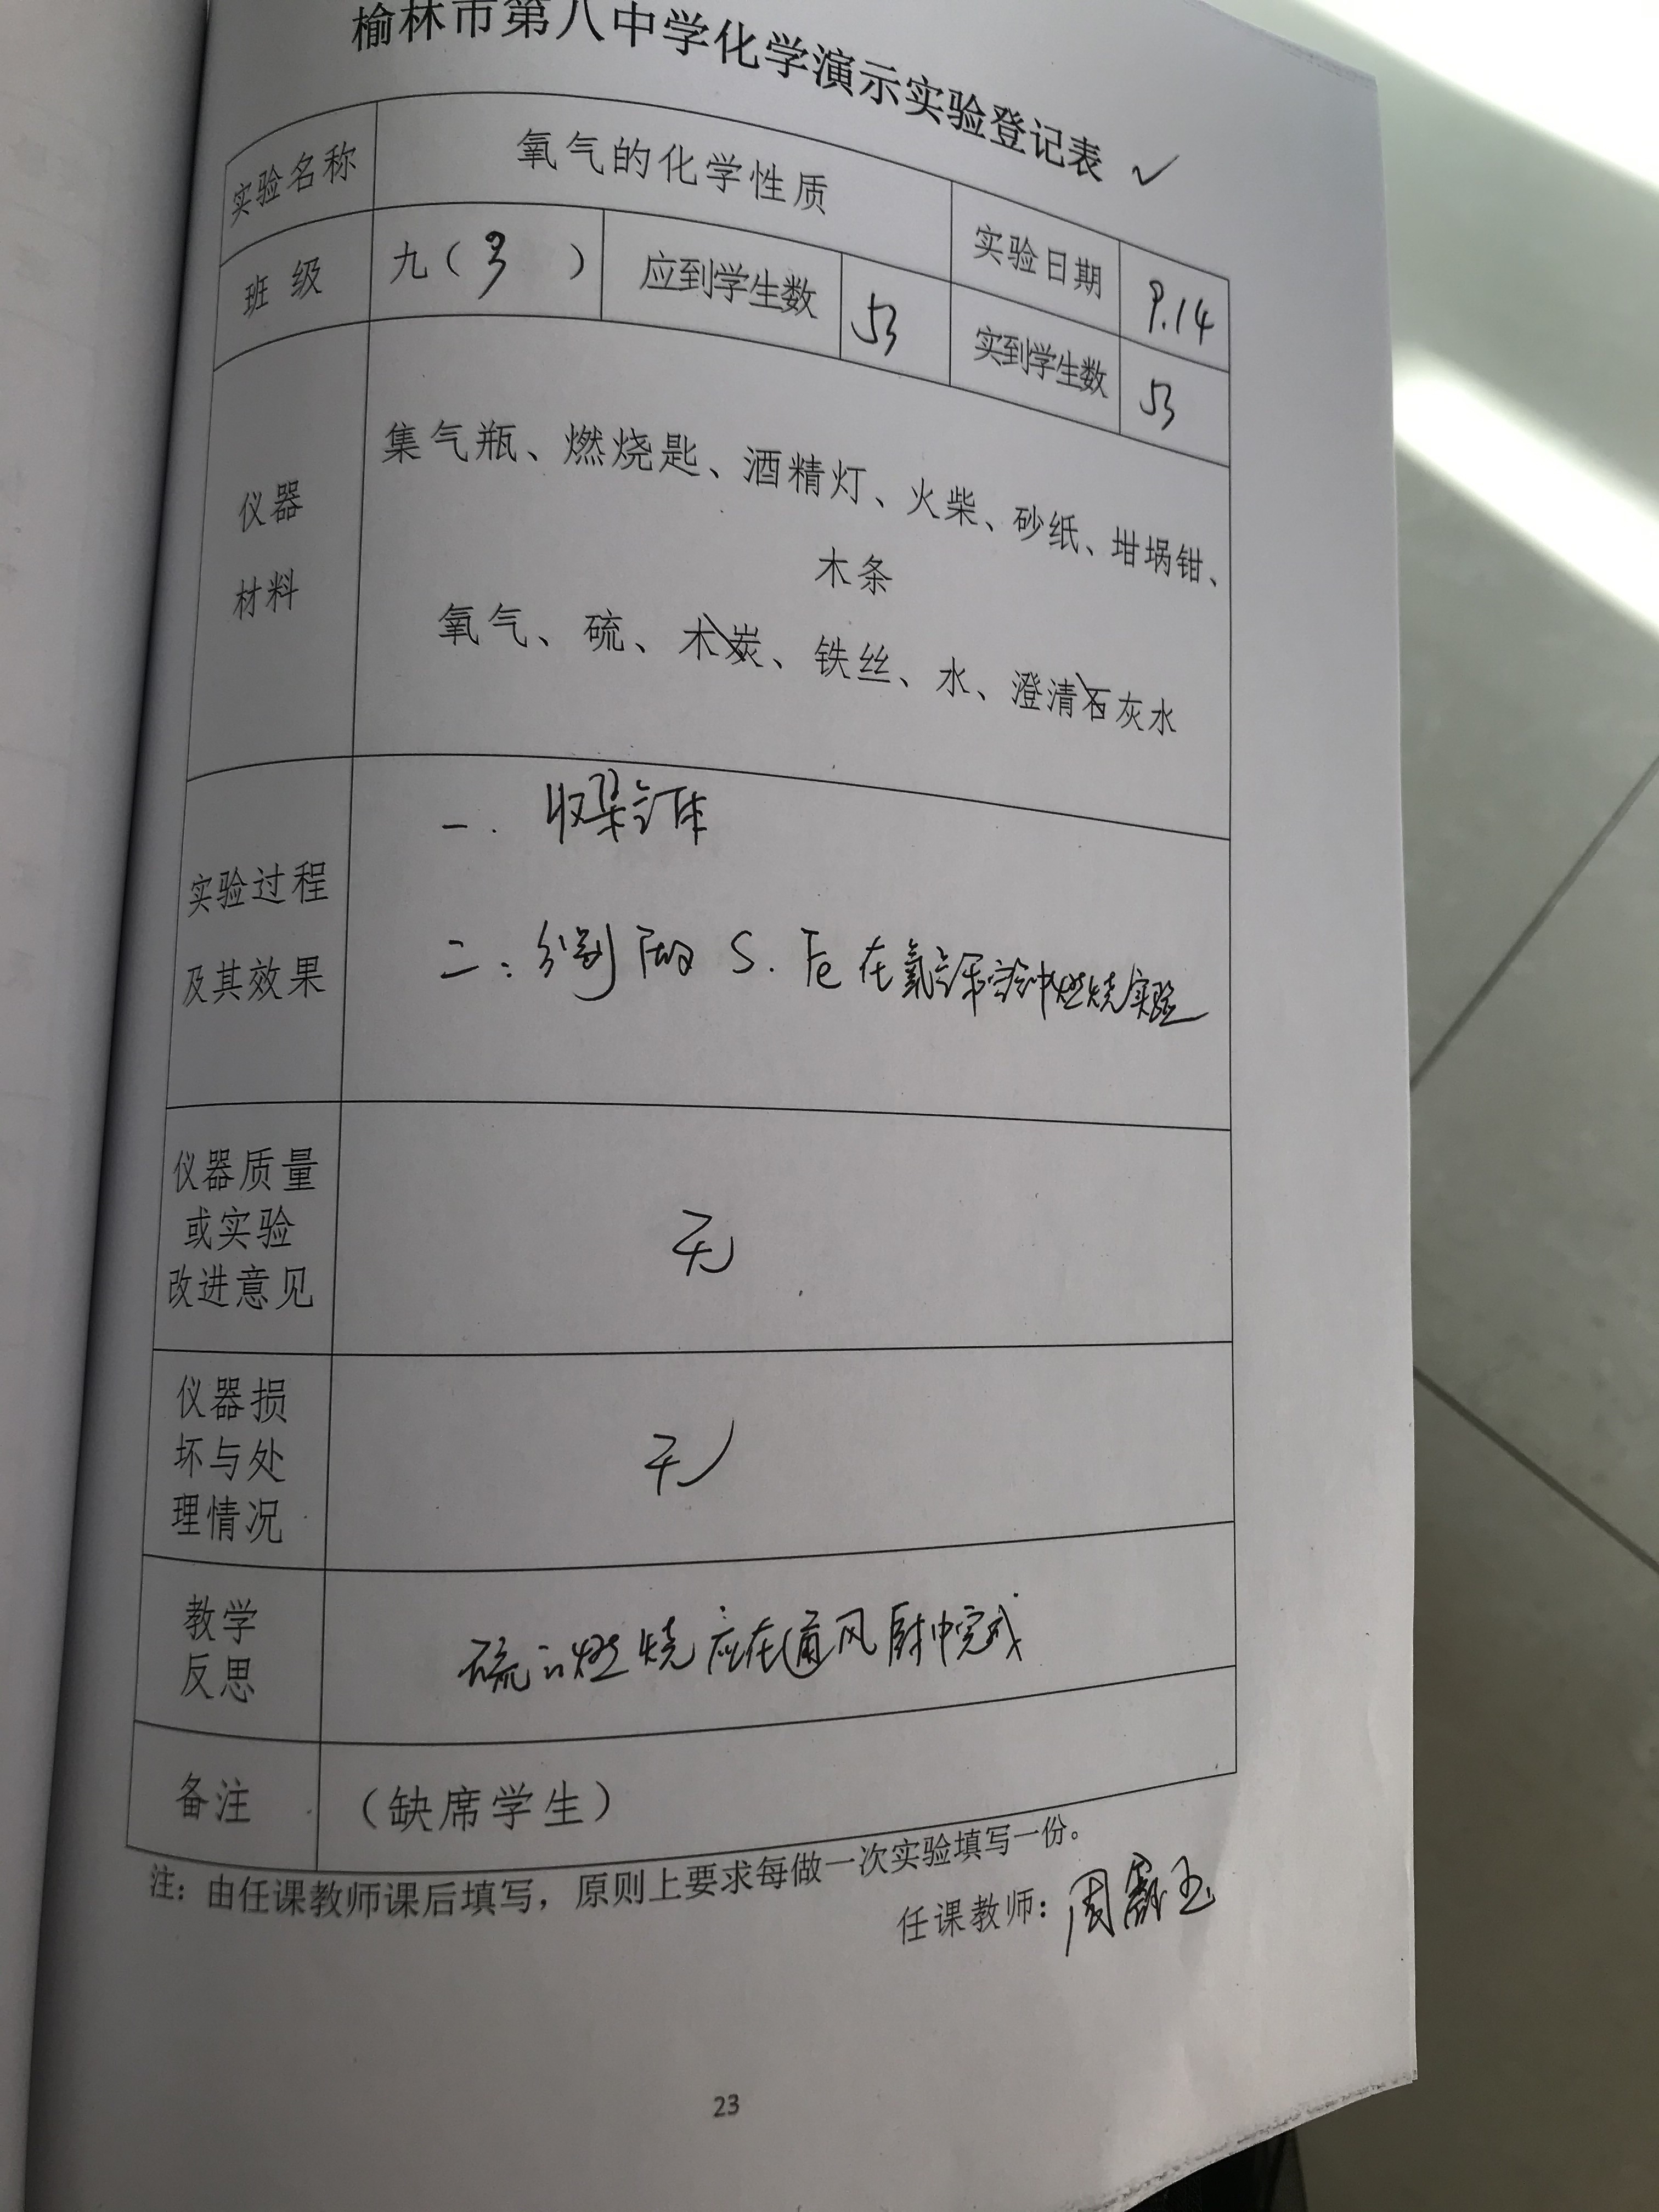 榆林市第八中学化学演示实验登记表 ✓
实验名称 氧气的化学性质 实验日期 9.14
班级 九（3） 应到学生数 53 实到学生数 53
仪器
材料
集气瓶、燃烧匙、酒精灯、火柴、砂纸、坩埚钳、
木条
氧气、硫、木炭、铁丝、水、澄清石灰水
实验过程
及其效果
一. 收集气体
二: 分别做 S. Fe 在氧气中燃烧实验
仪器质量
或实验
改进意见
无
仪器损
坏与处
理情况
无
教学
反思
硫的燃烧应在通风厨中完成
备注 （缺席学生）
注：由任课教师课后填写，原则上要求每做一次实验填写一份。
任课教师：周
23